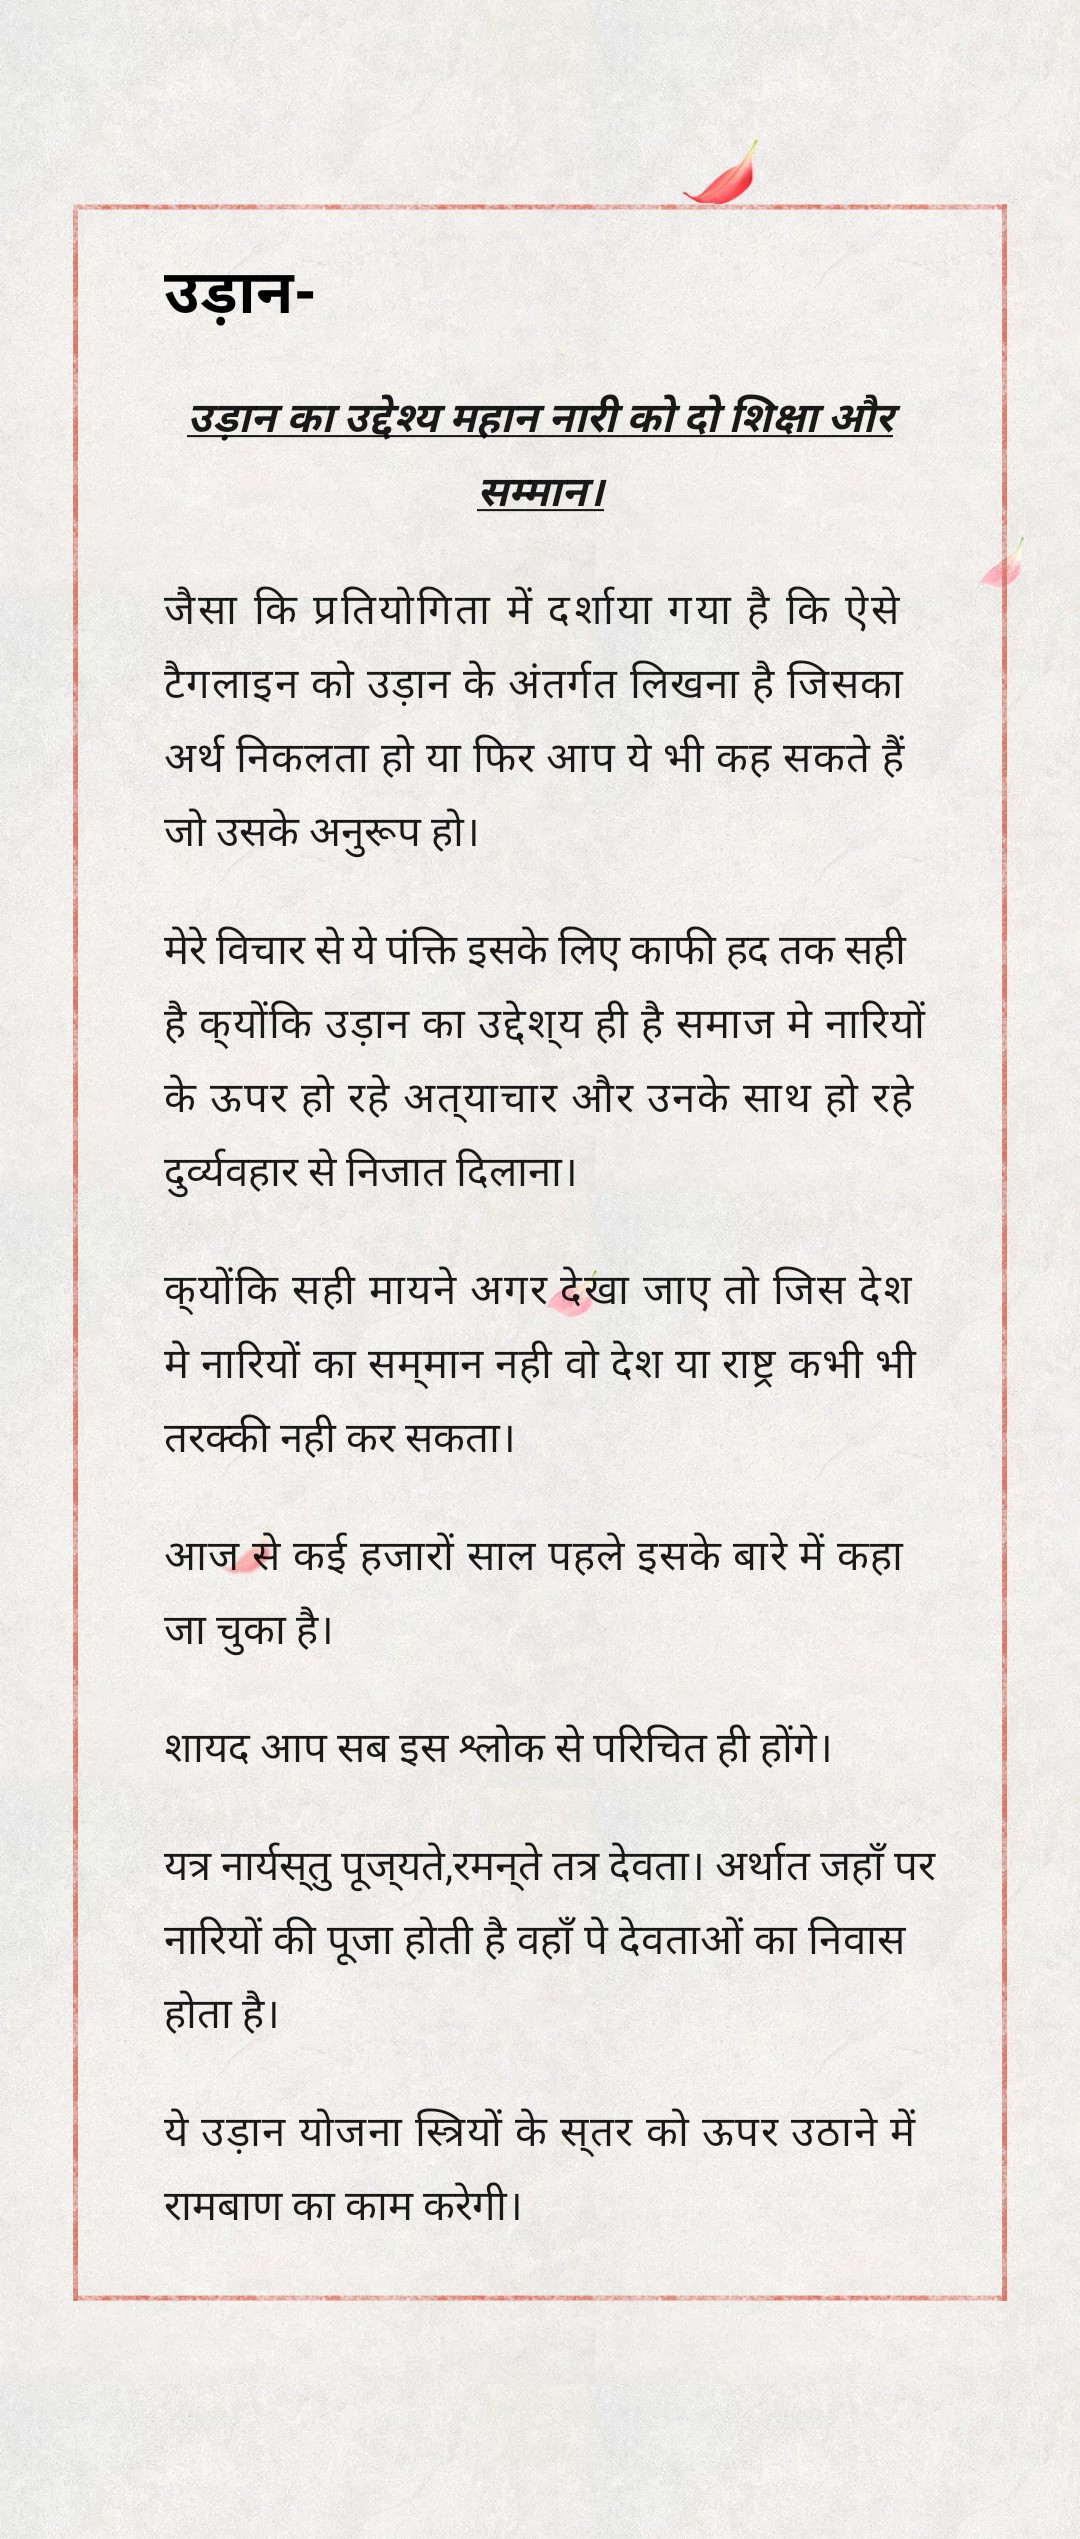 उड़ान-
उड़ान का उद्देश्य महान नारी को दो शिक्षा और
सम्मान।
जैसा कि प्रतियोगिता में दर्शाया गया है कि ऐसे
टैगलाइन को उड़ान के अंतर्गत लिखना है जिसका
अर्थ निकलता हो या फिर आप ये भी कह सकते हैं
जो उसके अनुरूप हो।
मेरे विचार से ये पंक्ति इसके लिए काफी हद तक सही
है क्योंकि उड़ान का उद्देश्य ही है समाज मे नारियों
के ऊपर हो रहे अत्याचार और उनके साथ हो रहे
दुर्व्यवहार से निजात दिलाना।
क्योंकि सही मायने अगर देखा जाए तो जिस देश
मे नारियों का सम्मान नही वो देश या राष्ट्र कभी भी
तरक्की नही कर सकता।
आज से कई हजारों साल पहले इसके बारे में कहा
जा चुका है।
शायद आप सब इस श्लोक से परिचित ही होंगे।
यत्र नार्यस्तु पूज्यते,रमन्ते तत्र देवता। अर्थात जहाँ पर
नारियों की पूजा होती है वहाँ पे देवताओं का निवास
होता है।
ये उड़ान योजना स्त्रियों के स्तर को ऊपर उठाने में
रामबाण का काम करेगी।